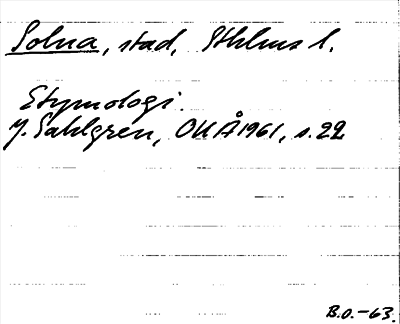 Solna, stad, Sthlms l.
Etymologi.
J. Sahlgren, OUÅ 1961, s. 22
B.O.-63.